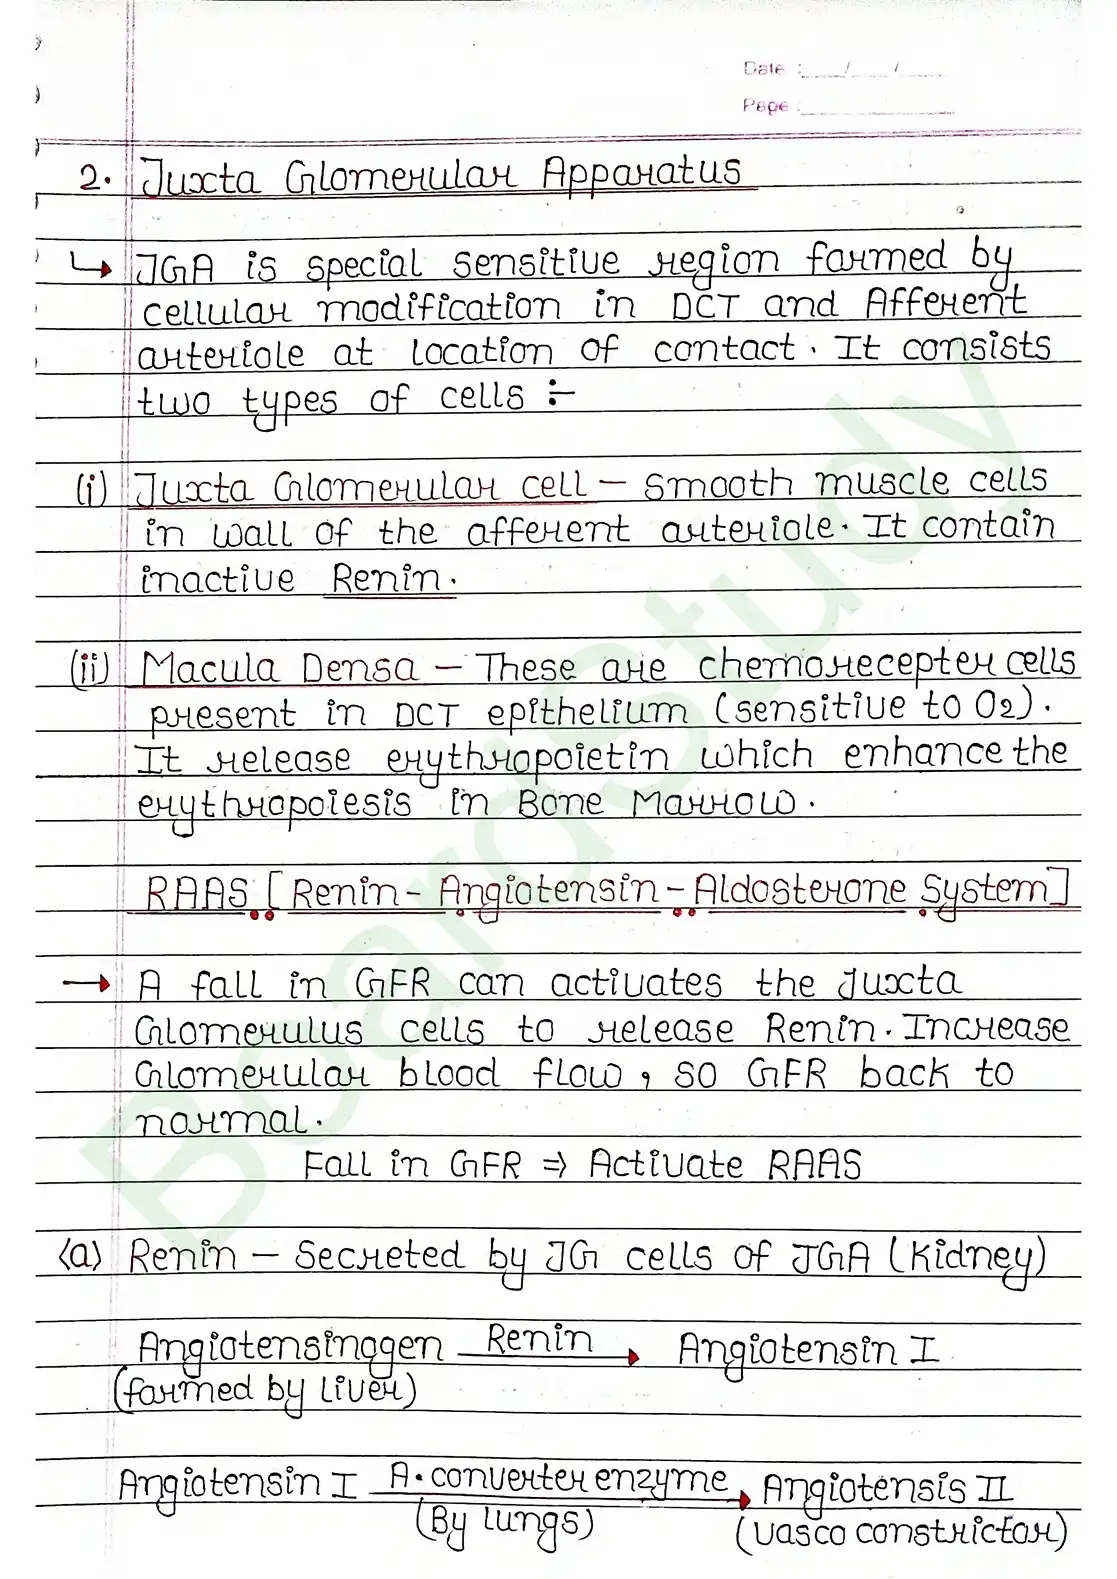 Date : __/__/__
Page :
2. Juxta Glomerular Apparatus
↳ JGA is special sensitive region formed by
cellular modification in DCT and Afferent
arteriole at location of contact. It consists
two types of cells :-
(i) Juxta Glomerular cell - smooth muscle cells
in wall of the afferent arteriole. It contain
inactive Renin.
(ii) Macula Densa - These are chemorecepter cells
present in DCT epithelium (sensitive to O2).
It release erythropoietin which enhance the
erythropoiesis in Bone Marrow.
RAAS [Renin - Angiotensin - Aldosterone System]
→ A fall in GFR can activates the Juxta
Glomerulus cells to release Renin. Increase
Glomerular blood flow, so GFR back to
normal.
Fall in GFR ⇒ Activate RAAS
(a) Renin - Secreted by JG cells of JGA (Kidney)
Angiotensinogen Renin → Angiotensin I
(formed by liver)
Angiotensin I A. converter enzyme → Angiotensis II
(By lungs) (vasco constrictor)
BoardStudy